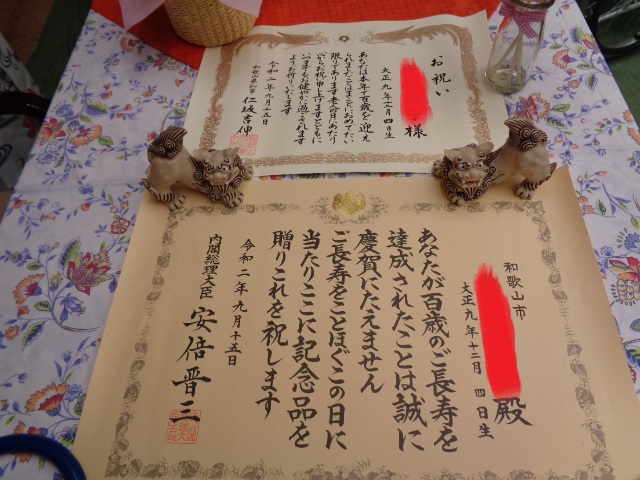 お祝い
様
大正九年十二月四日生
あなたは本年百歳を迎え
られましたことはまことにおめでたい
限りであります老人の日にあたり
心からお祝い申し上げますとともに
いつまでもお健やかに過ごされます
ようお祈りいたします
令和二年九月十五日
和歌山県知事 仁坂吉伸
和歌山市
殿
大正九年十二月四日生
あなたが百歳のご長寿を
達成されたことは誠に
慶賀にたえません
ご長寿をことほぐこの日に
当たりここに記念品を
贈りこれを祝します
令和二年九月十五日
内閣総理大臣 安倍晋三